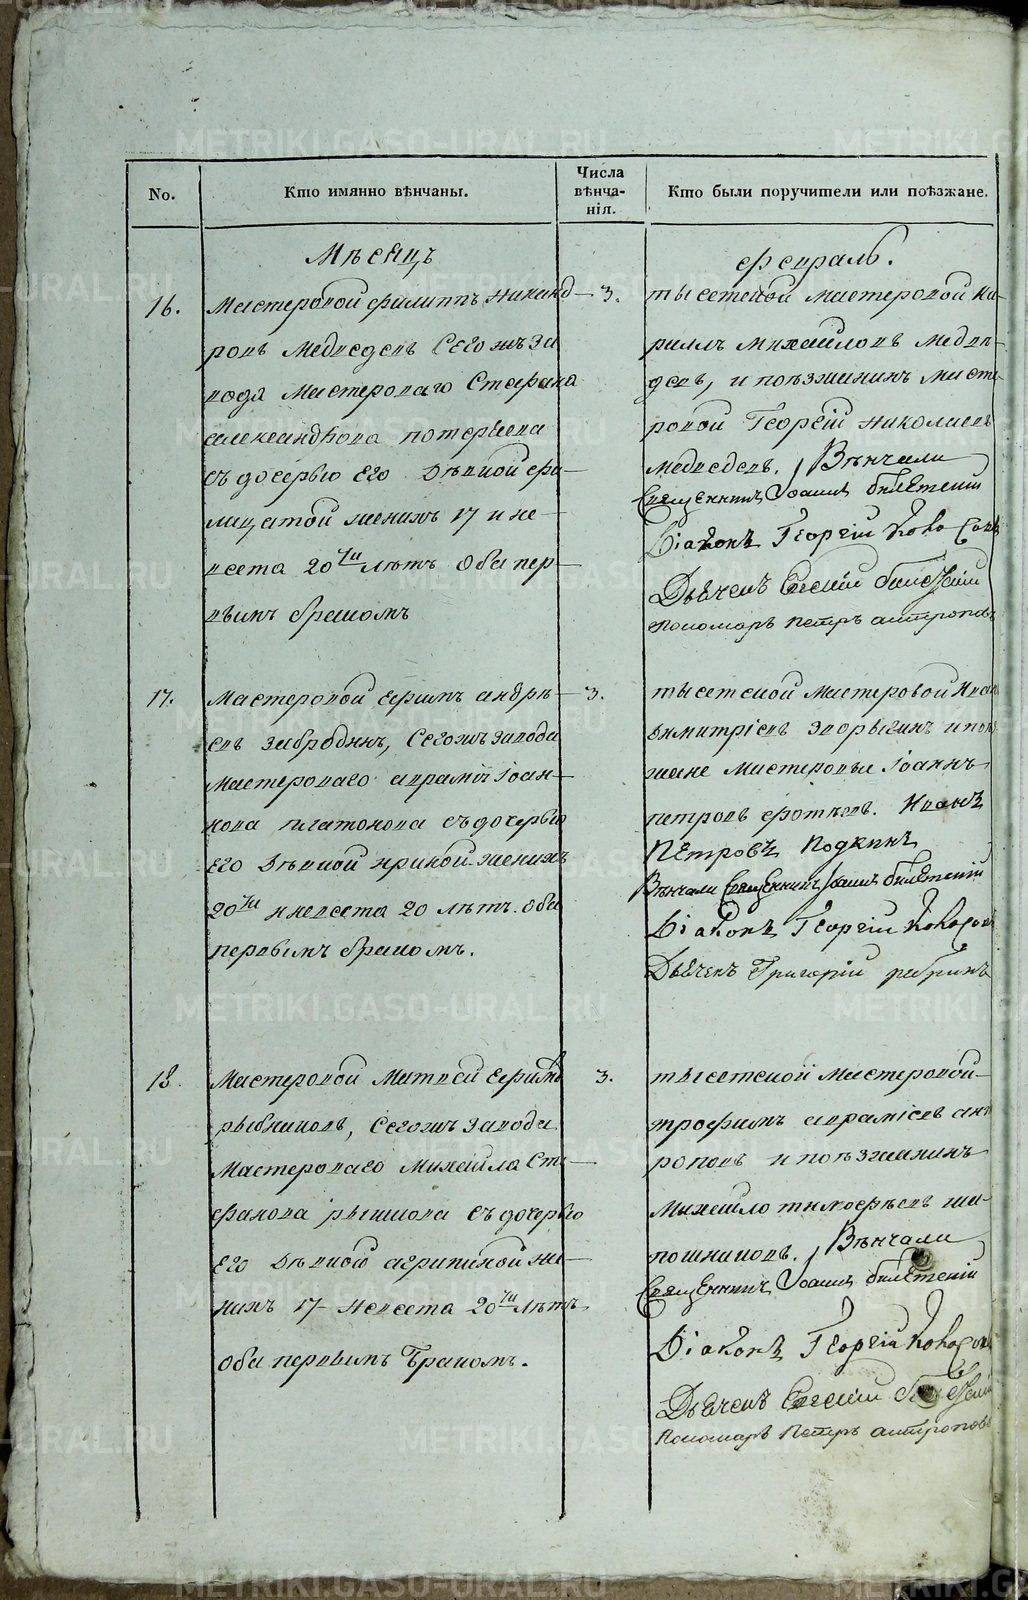 No.
Кто имянно вѣнчаны.
Числа
вѣнча-
нія.
Кто были поручители или поѣзжане.
Мѣсецъ
февраль.
16.
Мастеровой филиппъ никанд-
ровъ Медведевъ Сегожъ за
вода Мастероваго Стефана
александрова
съ дочерью его Дѣвкой фи-
лицатой женихъ 17 и не-
веста 20ти лѣтъ оба пер-
вымъ бракомъ
3.
тысетской мастеровой Ки-
риллъ михайловъ медве-
девъ, и поѣзжанинъ масте
ровой Георгій николаевъ
медведевъ. Вѣнчали
Священникъ Іоаннъ
Діаконъ Георгій
Дьячекъ Евгеній
пономарь петръ антроповъ
17.
Мастеровой ефимъ андрѣ-
евъ забродинъ, Сегожъ завода
мастероваго авраміа іоан-
нова платонова съ дочерью
его Дѣвкой ириной женихъ
20ти и невеста 20 лѣтъ. оба
первымъ бракомъ.
3.
тысетской мастеровой Иван
димитріевъ и поѣз
жане мастеровые іоаннъ
петровъ Иванъ
Петровъ Подкинъ
Вѣнчали Священникъ Іоаннъ
Діаконъ Георгій
Дьячекъ Григорій
18.
Мастеровой Матвей Ефимъ
рыбниковъ, Сегожъ завода
Мастероваго Михаила Сте-
фанова съ дочерью
его Дѣвкою агрипиной же-
нихъ 17 невеста 20ти лѣтъ
оба первымъ Бракомъ.
3.
тысетской мастеровой
трофимъ авраміевъ ант
роповъ и поѣзжанинъ
михайло тимофѣевъ ша-
пошниковъ. Вѣнчали
Священникъ Іоаннъ
Діаконъ Георгій
Дьячекъ Евгеній
пономарь петръ антроповъ
METRIKI.GASO-URAL.RU